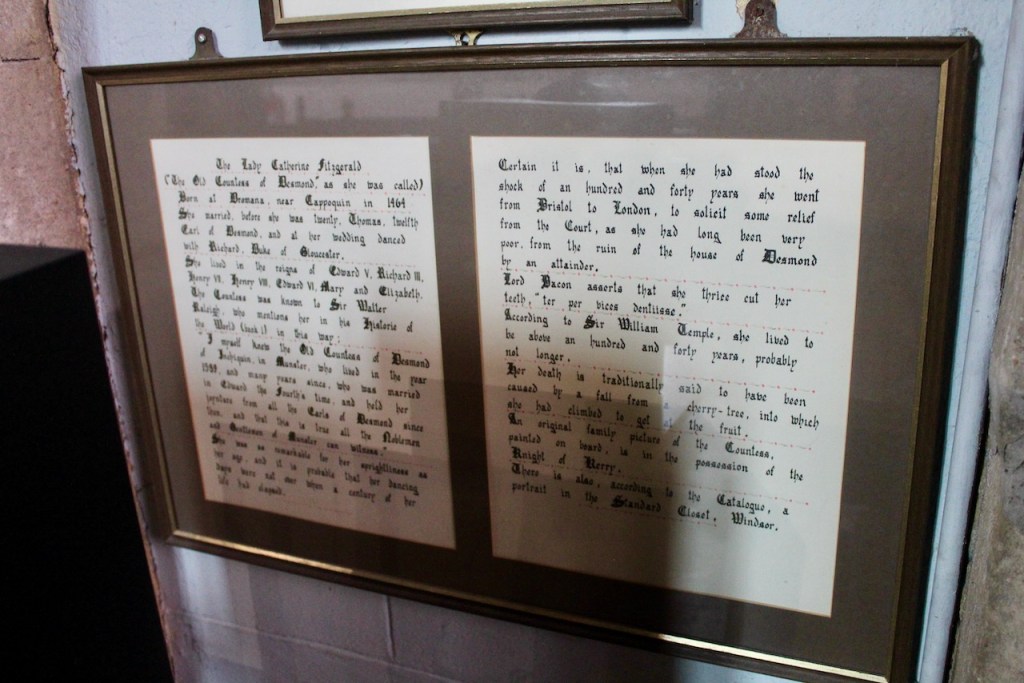 The Lady Catherine Fitzgerald
("The Old Countess of Desmond," as she was called)
Born at Dromana, near Cappoquin in 1464
She married, before she was twenty, Thomas, twelfth
Earl of Desmond, and at her wedding danced
with Richard, Duke of Gloucester.
She lived in the reigns of Edward V, Richard III,
Henry VI, Henry VIII, Edward VI, Mary and Elizabeth.
The Countess was known to Sir Walter
Raleigh, who mentions her in his Historie of
the World (book 1) in this way:
"I myself knew the Old Countess of Desmond
of Inchiquin, in Munster, who lived in the year
1589, and many years since, who was married
in Edward the Fourth's time, and held her
joynture from all the Earls of Desmond since
then, and that this is true all the Noblemen
and Gentlemen of Munster can witness."
She was as remarkable for her sprightliness as
her age, and it is probable that her dancing
days were not over when a century of her
life had elapsed.
Certain it is, that when she had stood the
shock of an hundred and forty years she went
from Bristol to London, to solicit some relief
from the Court, as she had long been very
poor, from the ruin of the house of Desmond
by an attainder.
Lord Bacon asserts that she thrice cut her
teeth, "ter per vices dentiisse."
According to Sir William Temple, she lived to
be above an hundred and forty years, probably
not longer.
Her death is traditionally said to have been
caused by a fall from a cherry-tree, into which
she had climbed to get at the fruit.
An original family picture of the Countess,
painted on board, is in the possession of the
Knight of Kerry.
There is also, according to the Catalogue, a
portrait in the Standard Closet, Windsor.